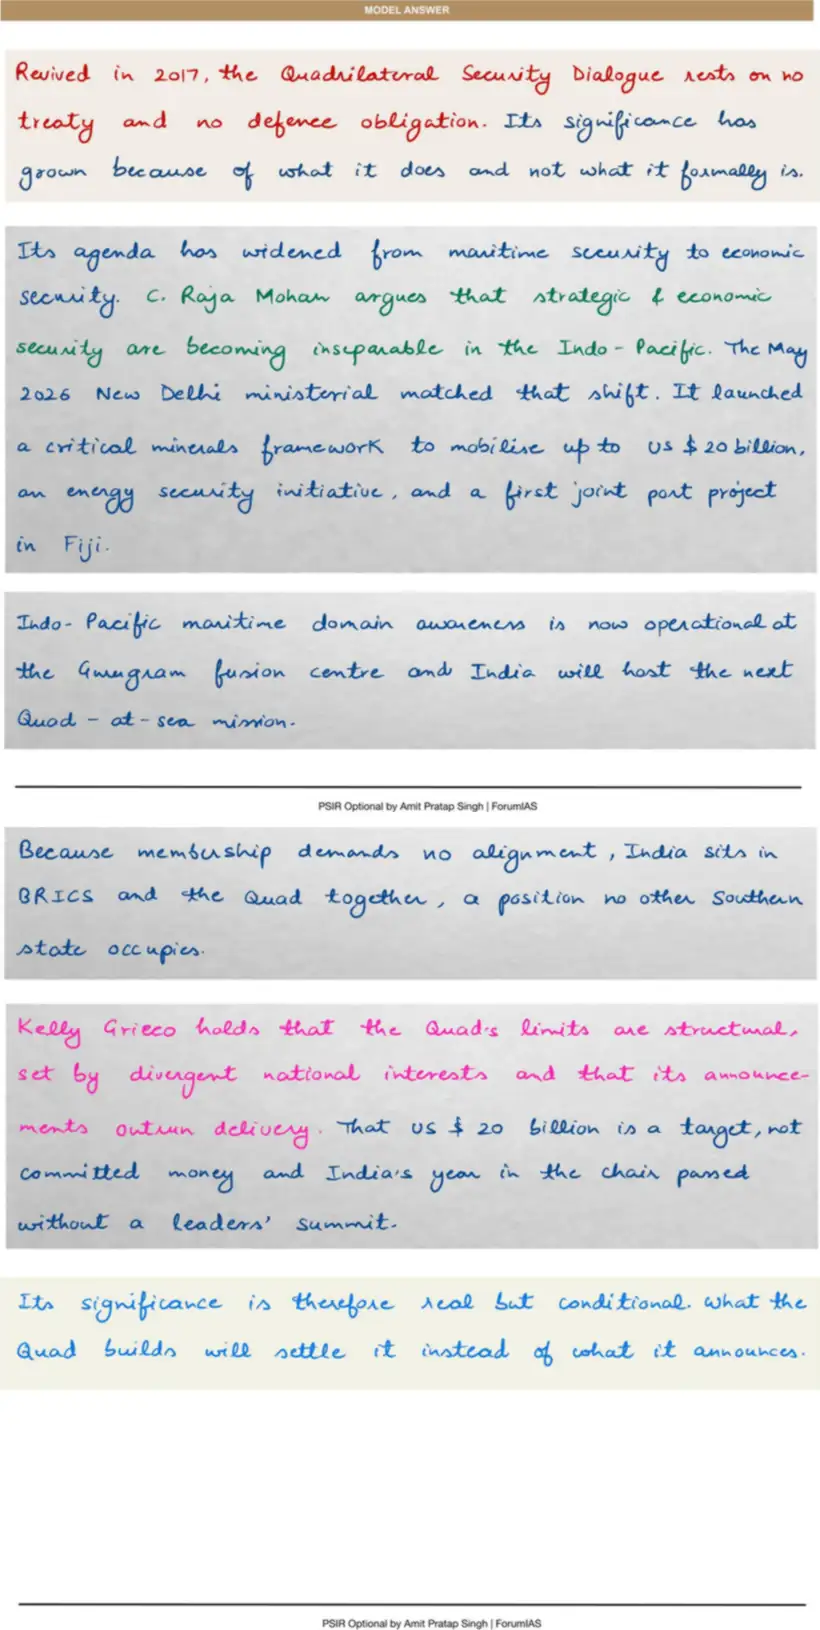 MODEL ANSWER
Revived in 2017, the Quadrilateral Security Dialogue rests on no
treaty and no defence obligation. Its significance has
grown because of what it does and not what it formally is.
Its agenda has widened from maritime security to economic
security. C. Raja Mohan argues that strategic & economic
security are becoming inseparable in the Indo-Pacific. The May
2026 New Delhi ministerial matched that shift. It launched
a critical minerals framework to mobilise up to US $ 20 billion,
an energy security initiative, and a first joint port project
in Fiji.
Indo-Pacific maritime domain awareness is now operational at
the Gurugram fusion centre and India will host the next
Quad-at-sea mission.
PSIR Optional by Amit Pratap Singh | ForumIAS
Because membership demands no alignment, India sits in
BRICS and the Quad together, a position no other Southern
state occupies.
Kelly Grieco holds that the Quad's limits are structural,
set by divergent national interests and that its announce-
ments outrun delivery. That US $ 20 billion is a target, not
committed money and India's year in the chair passed
without a leaders' summit.
Its significance is therefore real but conditional. What the
Quad builds will settle it instead of what it announces.
PSIR Optional by Amit Pratap Singh | ForumIAS